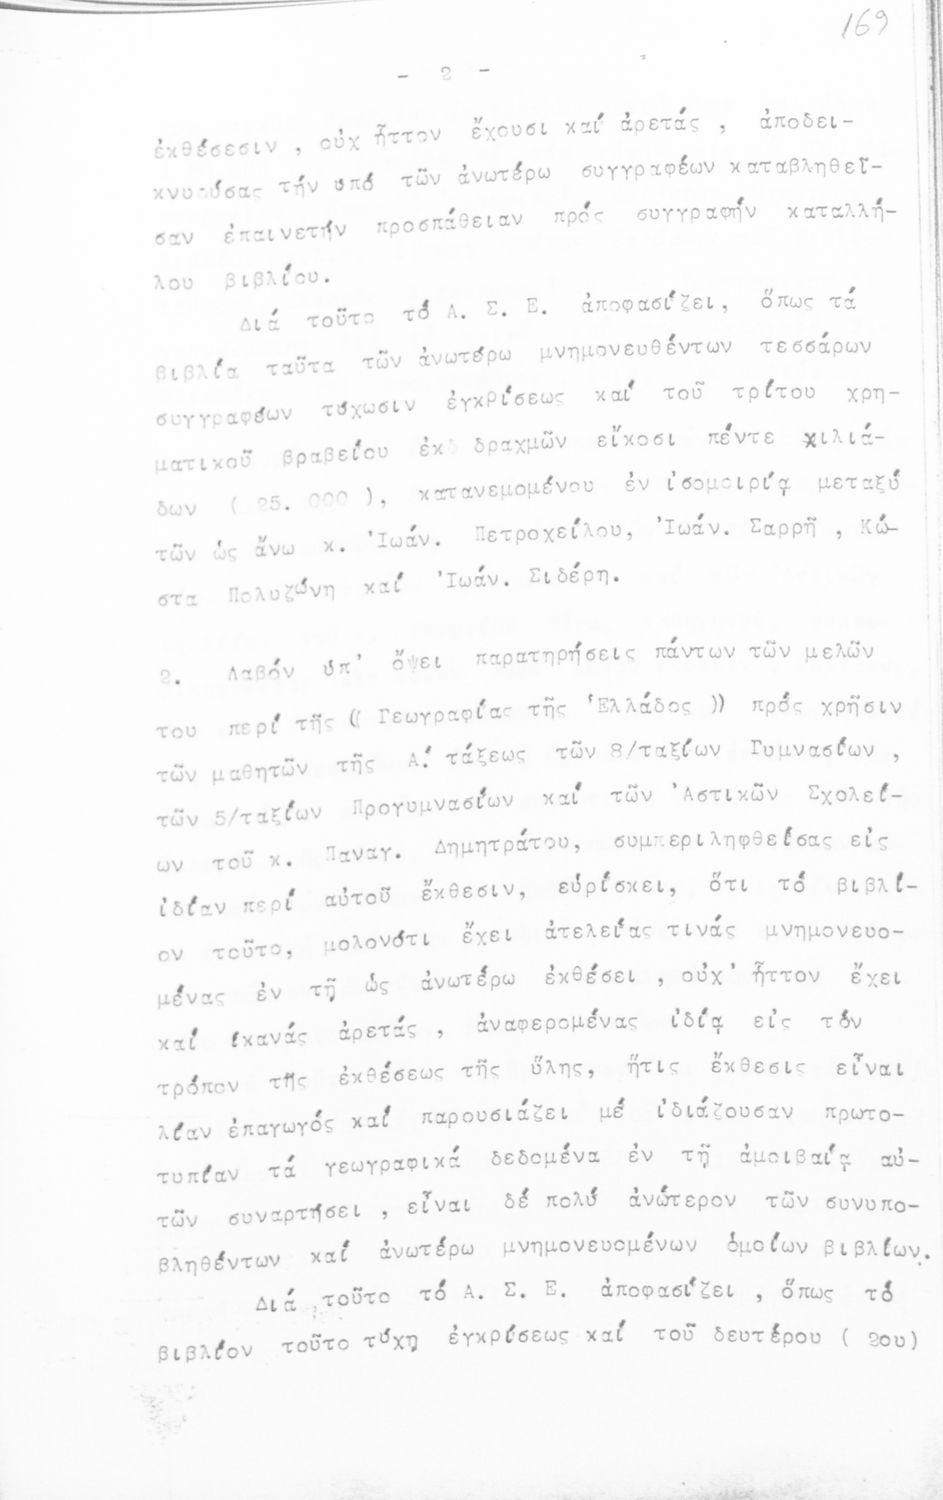 169
- 2 -
ἐκθέσεσιν , οὐχ ἧττον ἔχουσι καί ἀρετάς , ἀποδει-
κνυούσας τήν ὑπό τῶν ἀνωτέρω συγγραφέων καταβληθεῖ-
σαν ἐπαινετήν προσπάθειαν πρός συγγραφήν καταλλή-
λου βιβλίου.
Διά τοῦτο τό Α. Σ. Ε. ἀποφασίζει, ὅπως τά
βιβλία ταῦτα τῶν ἀνωτέρω μνημονευθέντων τεσσάρων
συγγραφέων τύχωσιν ἐγκρίσεως καί τοῦ τρίτου χρη-
ματικοῦ βραβείου ἐκ δραχμῶν εἴκοσι πέντε χιλιά-
δων ( 25. 000 ), κατανεμομένου ἐν ἰσομοιρίᾳ μεταξύ
τῶν ὡς ἄνω κ. Ἰωάν. Πετροχείλου, Ἰωάν. Σαρρῆ , Κώ-
στα Πολυζώνη καί Ἰωάν. Σιδέρη.
2. Λαβόν ὑπ' ὄψει παρατηρήσεις πάντων τῶν μελῶν
του περί τῆς (( Γεωγραφίας τῆς Ἑλλάδος )) πρός χρῆσιν
τῶν μαθητῶν τῆς Α΄. τάξεως τῶν 8/ταξίων Γυμνασίων ,
τῶν 5/ταξίων Προγυμνασίων καί τῶν Ἀστικῶν Σχολεί-
ων τοῦ κ. Παναγ. Δημητράτου, συμπεριληφθείσας εἰς
ἰδίαν περί αὐτοῦ ἔκθεσιν, εὑρίσκει, ὅτι τό βιβλί-
ον τοῦτο, μολονότι ἔχει ἀτελείας τινάς μνημονευο-
μένας ἐν τῇ ὡς ἀνωτέρω ἐκθέσει , οὐχ' ἧττον ἔχει
καί ἱκανάς ἀρετάς , ἀναφερομένας ἰδίᾳ εἰς τόν
τρόπον τῆς ἐκθέσεως τῆς ὕλης, ἥτις ἔκθεσις εἶναι
λίαν ἐπαγωγός καί παρουσιάζει μέ ἰδιάζουσαν πρωτο-
τυπίαν τά γεωγραφικά δεδομένα ἐν τῇ ἀμοιβαίᾳ αὐ-
τῶν συναρτήσει , εἶναι δέ πολύ ἀνώτερον τῶν συνυπο-
βληθέντων καί ἀνωτέρω μνημονευομένων ὁμοίων βιβλίων.
Διά τοῦτο τό Α. Σ. Ε. ἀποφασίζει , ὅπως τό
βιβλίον τοῦτο τύχῃ ἐγκρίσεως καί τοῦ δευτέρου ( 2ου)